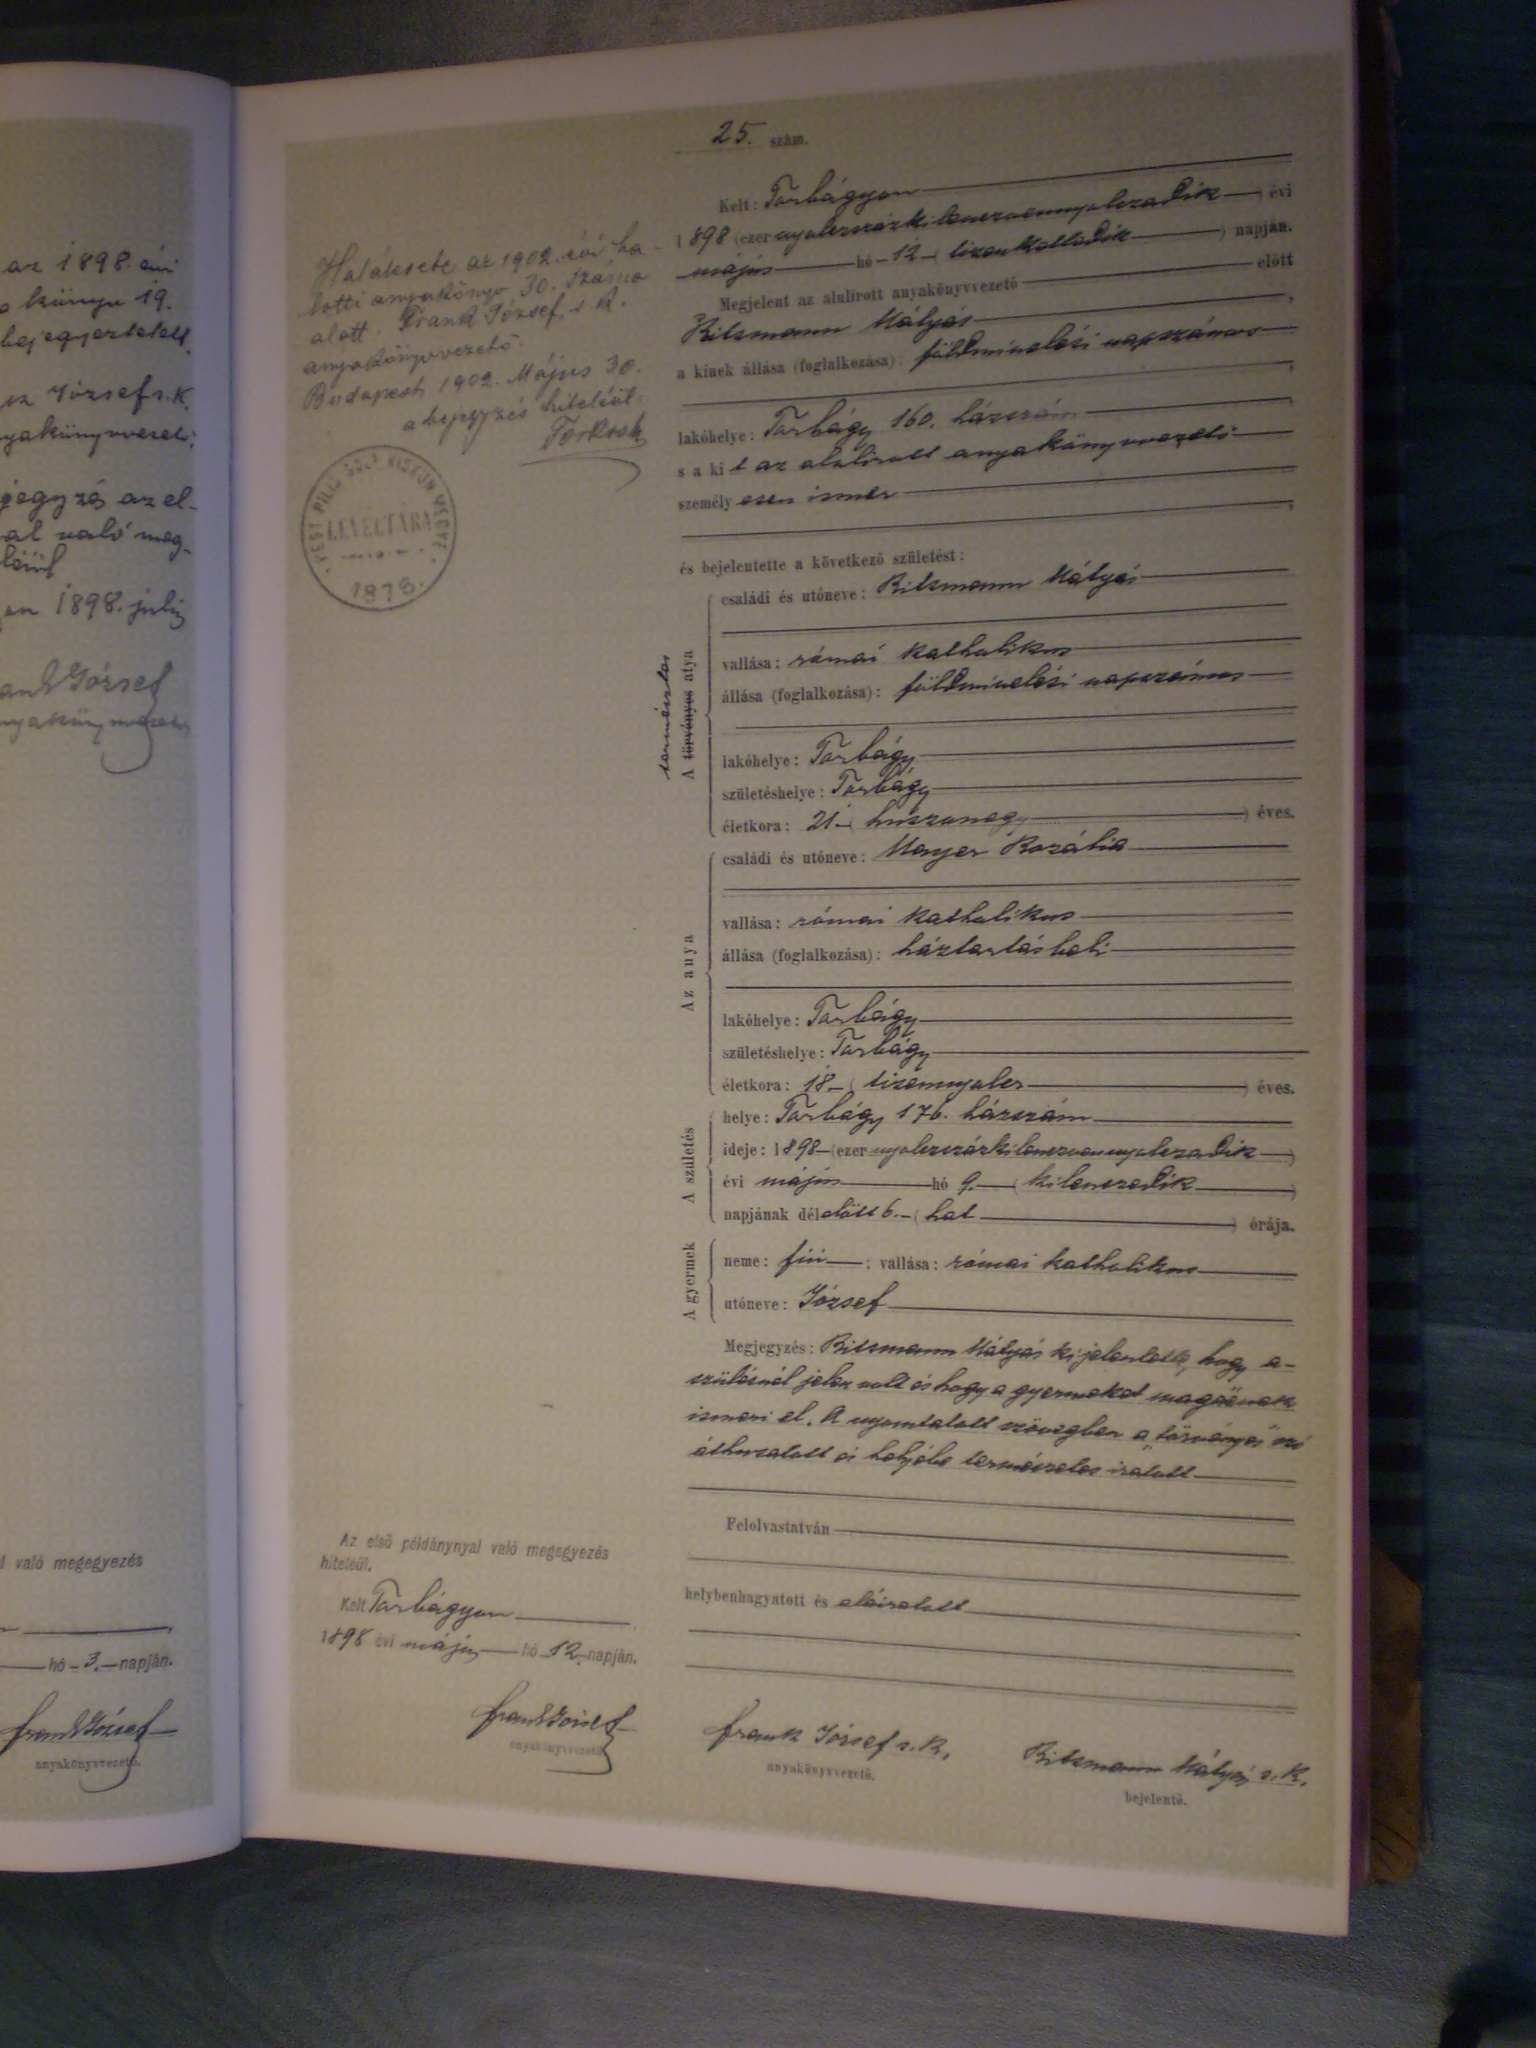 az 1898. évi
könyv 19.
bejegyeztetett.
József s. k.
anyakönyvvezető
az el-
való meg-
1898. júli
Frank József
anyakönyvvezető
való megegyezés
hó 3. napján.
Frank József
anyakönyvvezető.
25. szám.
Halálesete az 1902. évi ha-
lotti anyakönyv 30. száma
alatt. Frank József, s. k.
anyakönyvvezető.
Budapest, 1902. Május 30.
a bejegyzés hiteléül:
PEST PILIS SOLT KISKUN VEGYE
LEVÉLTÁRA
1878.
Kelt: Torbágyon
1898 (ezer nyolczszázkilenczvennyolczadik) évi
május hó 12 (tizenkettedik) napján.
Megjelent az alulirott anyakönyvvezető előtt
Ritzmann Mátyás,
a kinek állása (foglalkozása): földmivelési napszámos,
lakóhelye: Torbágy 160. házszám,
s a kit az alulirott anyakönyvvezető
személyesen ismer,
és bejelentette a következő születést:
A törvényes atya
természetes
családi és utóneve: Ritzmann Mátyás
vallása: római katholikus
állása (foglalkozása): földmivelési napszámos
lakóhelye: Torbágy
születéshelye: Torbágy
életkora: 21 (huszonegy) éves.
Az anya
családi és utóneve: Mayer Rozália
vallása: római katholikus
állása (foglalkozása): háztartásbeli
lakóhelye: Torbágy
születéshelye: Torbágy
életkora: 18 (tizennyolcz) éves.
A születés
helye: Torbágy 176. házszám
ideje: 1898 (ezer nyolczszázkilenczvennyolczadik)
évi május hó 9. (kilenczedik)
napjának délelőtt 6. (hat) órája.
A gyermek
neme: fiú; vallása: római katholikus
utóneve: József
Megjegyzés: Ritzmann Mátyás kijelentette, hogy a
szülésnél jelen volt és hogy a gyermeket magáénak
ismeri el. A nyomtatott szövegben a „törvényes" szó
áthuzatott és helyébe természetes iratott
Felolvastatván
helybenhagyatott és aláiratott
Az első példánynyal való megegyezés
hiteléül.
Kelt Torbágyon
1898 évi május hó 12 napján.
Frank József
anyakönyvvezető.
Frank József s. k.
anyakönyvvezető.
Ritzmann Mátyás s. k.
bejelentő.